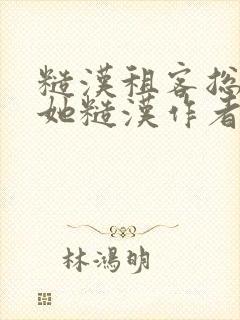 糙漢租客揔
她糙漢作者
林鴻明